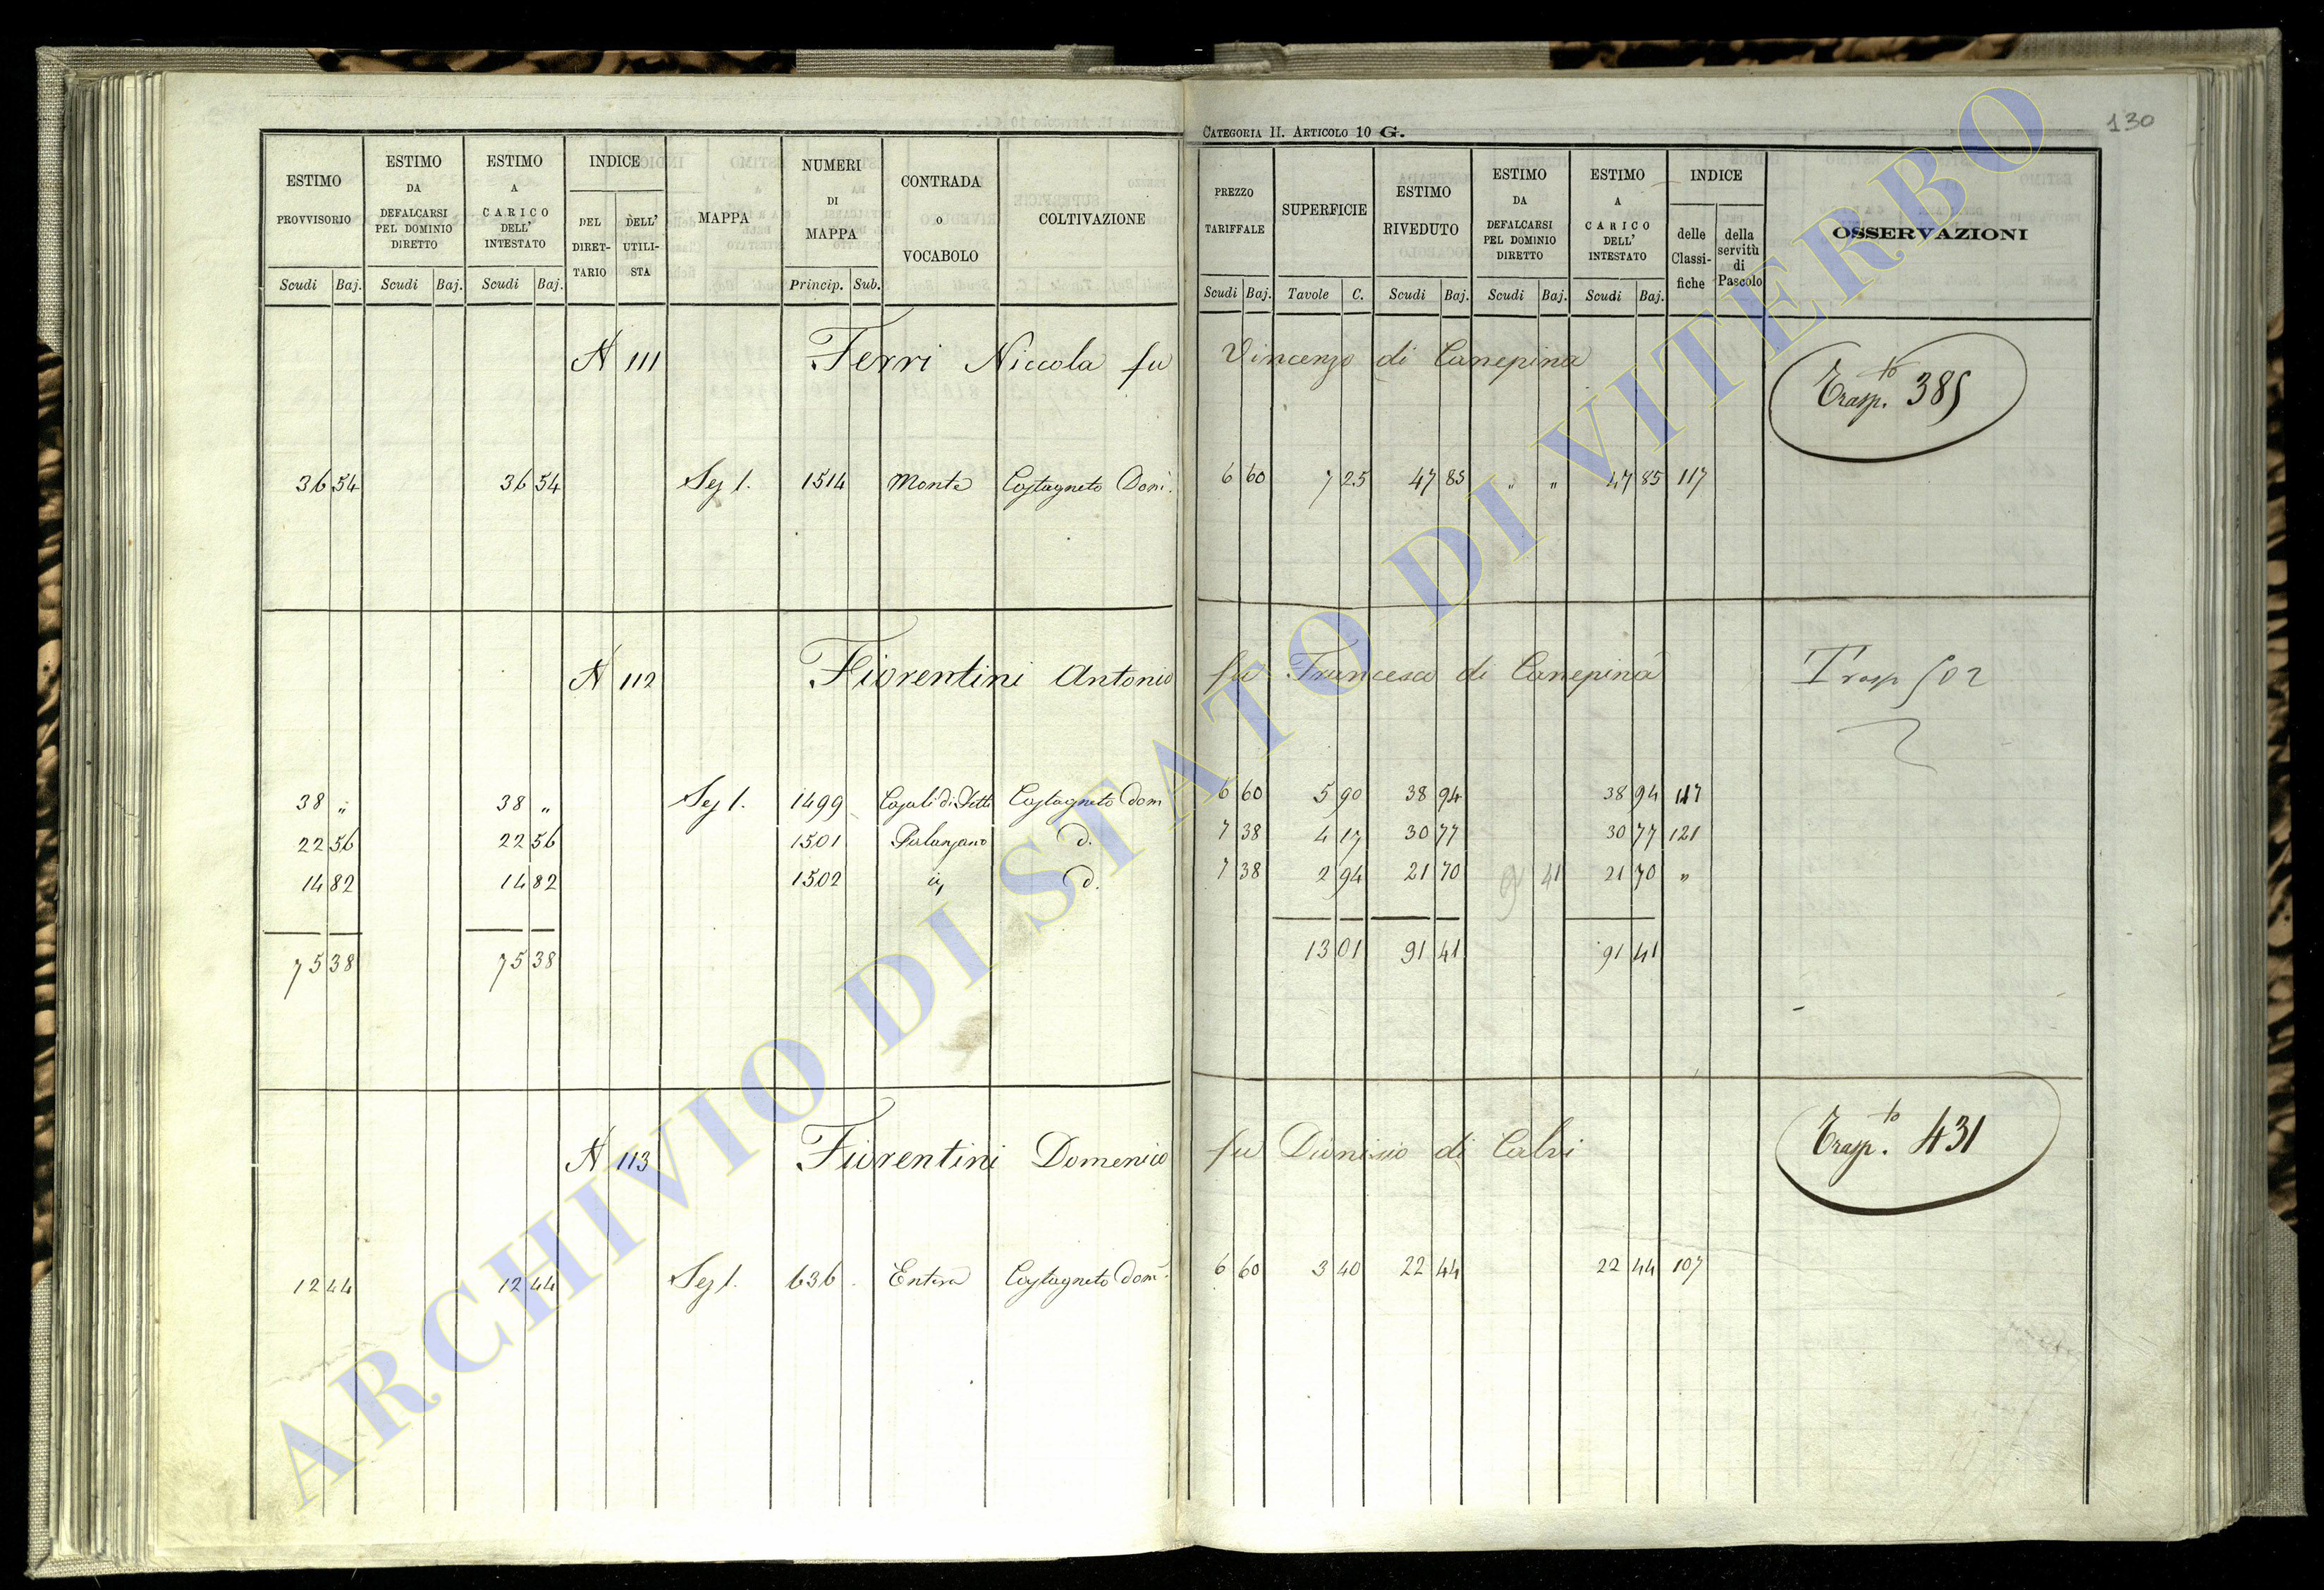 CATEGORIA II. ARTICOLO 10 G.
130
ESTIMO PROVVISORIO Scudi Baj.
ESTIMO DA DEFALCARSI PEL DOMINIO DIRETTO Scudi Baj.
ESTIMO A CARICO DELL' INTESTATO Scudi Baj.
INDICE DEL DIRET-TARIO DELL' UTILI-STA
MAPPA
NUMERI DI MAPPA Princip. Sub.
CONTRADA O VOCABOLO
COLTIVAZIONE
PREZZO TARIFFALE Scudi Baj.
SUPERFICIE Tavole C.
ESTIMO RIVEDUTO Scudi Baj.
ESTIMO DA DEFALCARSI PEL DOMINIO DIRETTO Scudi Baj.
ESTIMO A CARICO DELL' INTESTATO Scudi Baj.
INDICE delle Classi-fiche della servitù di Pascolo
OSSERVAZIONI
N 111 Ferri Niccola fu Vincenzo di Canepina Trasp.to 385
36 54 36 54 Sez 1. 1514 Monte Castagneto Dom. 6 60 7 25 47 85 " " 47 85 117
N 112 Fiorentini Antonio fu Francesco di Canepina Trasp 502
38 " 38 " Sez 1. 1499 Casali di Castagneto Dom 6 60 5 90 38 94 38 94 117
22 56 22 56 1501 Palanzano d. 7 38 4 17 30 77 30 77 121
14 82 14 82 1502 d. 7 38 2 94 21 70 91 41 21 70 "
75 38 75 38 13 01 91 41 91 41
N 113 Fiorentini Domenico fu Dionisio di Calvi Trasp.to 431
12 44 12 44 Sez 1. 636 Entera Castagneto Dom. 6 60 3 40 22 44 22 44 107
ARCHIVIO DI STATO DI VITERBO